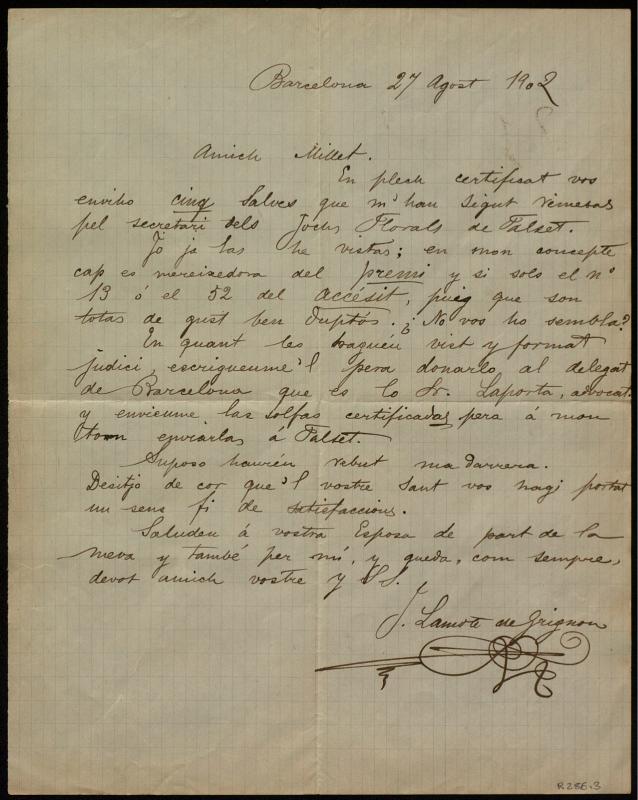 Barcelona 27 Agost 1902
Amich Millet.
En plech certificat vos
enviho cinq Salves que m'han sigut remesas
pel secretari dels Jochs Florals de Falset.
Jo ja las he vistas; en mon concepte
cap es mereixedora del premi y si sols el nº
13 ó el 52 del accésit, puig que son
totas de gust ben duptós. ¿No vos ho sembla?
En quant les haguéu vist y format
judici, escrigueume'l pera donarlo al delegat
de Barcelona que es lo Sr. Laporta, advocat.
y envieume las solfas certificadas pera á mon
torn enviarlas á Falset.
Suposo hauréu rebut ma darrera.
Desitjo de cor que'l vostre Sant vos hagi portat
un sens fi de satisfaccions.
Saludeu á vostra Esposa de part de la
meva y també per mí, y queda, com sempre,
devot amich vostre y S.S.
J. Lamote de Grignon
R.286.3